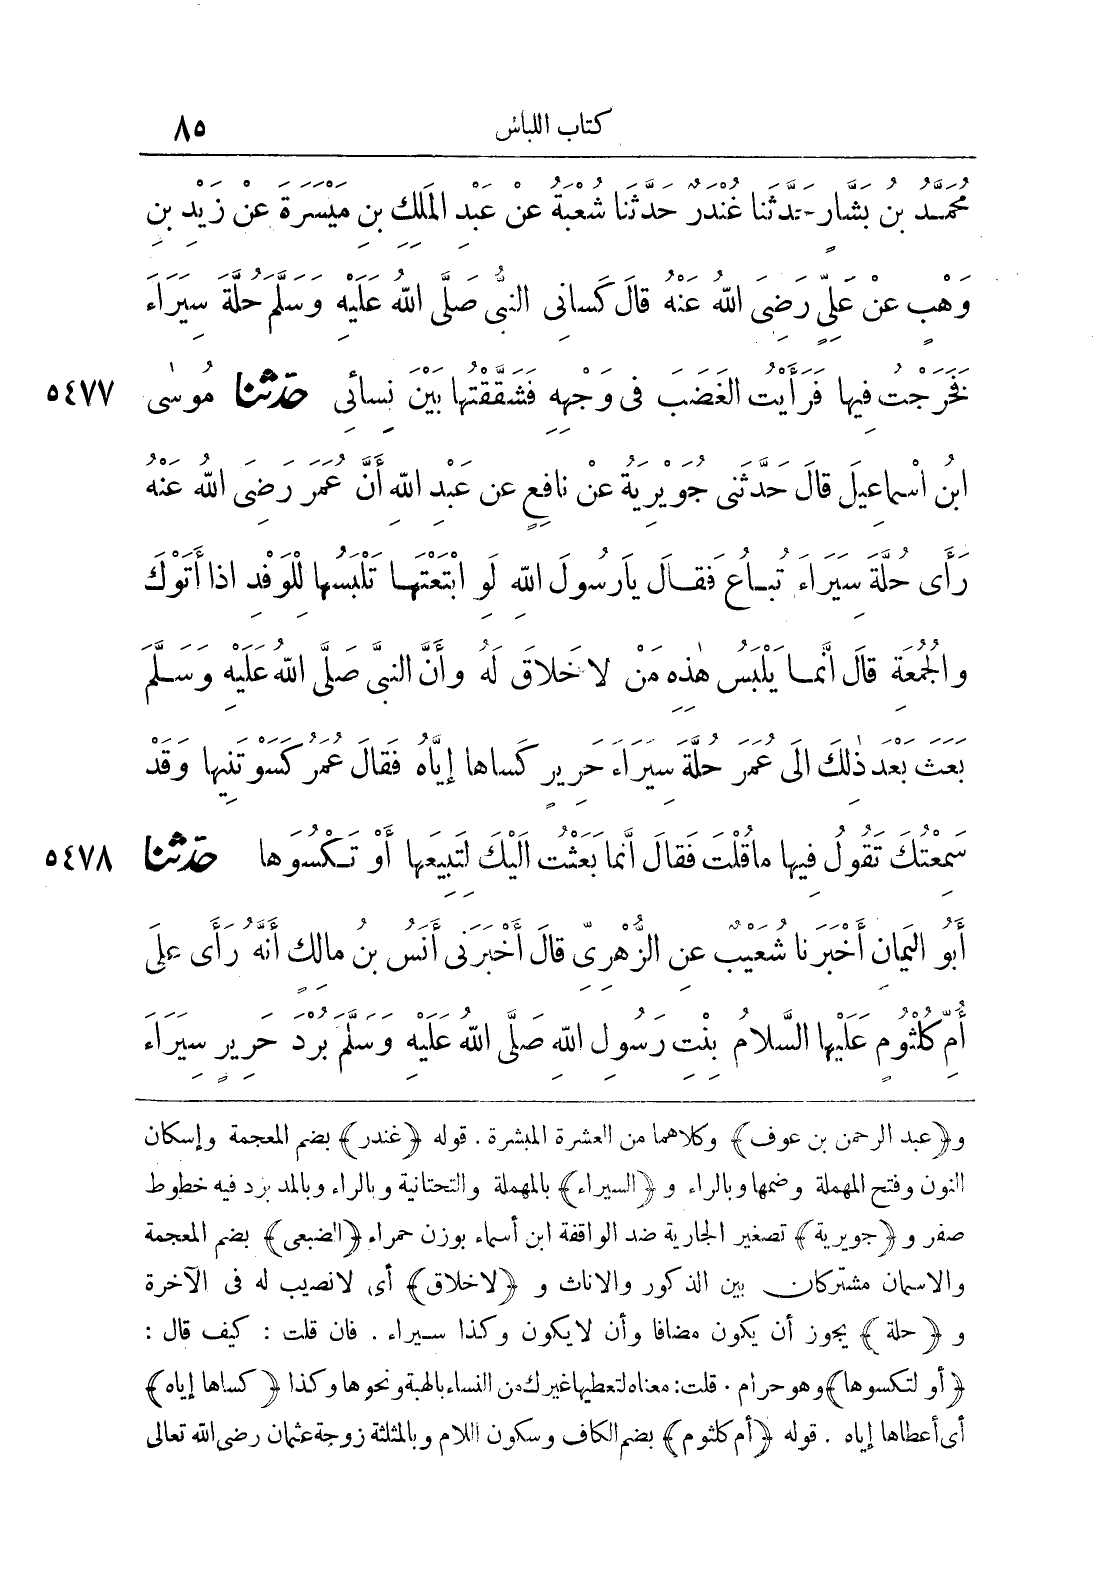 كتاب اللباس ٨٥
مُحَمَّدُ بنُ بَشَّارٍ حَدَّثَنَا غُنْدَرٌ حَدَّثَنَا شُعْبَةُ عنْ عَبْدِ المَلِكِ بنِ مَيْسَرَةَ عنْ زَيْدِ بنِ
وَهْبٍ عنْ عَلِيٍّ رَضِيَ اللهُ عنْهُ قالَ كَسانِى النبىُّ صَلَّى اللهُ عَلَيْهِ وَسَلَّمَ حُلَّةَ سِيَرَاءَ
فَخَرَجْتُ فِيها فَرَأَيْتُ الغَضَبَ فى وَجْهِهِ فَشَقَّقْتُها بَيْنَ نِسائِى حدثنا مُوسَى ٥٤٧٧
ابنُ اسْماعِيلَ قالَ حَدَّثَنى جُوَيْرِيَةُ عنْ نافِعٍ عن عَبْدِ اللهِ أَنَّ عُمَرَ رَضِىَ اللهُ عَنْهُ
رَأَى حُلَّةَ سِيَرَاءَ تُبـاعُ فَقـالَ يارَسُولَ اللهِ لَوِ ابْتَعْتَهـا تَلْبَسُها لِلْوَفْدِ اذا أَتَوْكَ
والجُمُعَةِ قالَ انَّمـا يَلْبَسُ هٰذِهِ مَنْ لا خَلاقَ لَهُ وأَنَّ النبىَّ صَلَّى اللهُ عَلَيْهِ وَسَـلَّمَ
بَعَثَ بَعْدَ ذٰلِكَ الَى عُمَرَ حُلَّةَ سِيَرَاءَ حَرِيرٍ كَساها إيَّاهُ فَقالَ عُمَرُ كَسَوْتَنِيها وَقَدْ
سَمِعْتُكَ تَقُولُ فِيها ماقُلْتَ فَقالَ انَّما بَعَثْتُ الَيْكَ لِتَبِيعَها أَوْ تَـكْسُوَها حدثنا ٥٤٧٨
أَبُو اليَمانِ أَخْبَرَنا شُعَيْبٌ عنِ الزُّهْرِىِّ قالَ أَخْبَرَنى أَنَسُ بنُ مالِكٍ أَنَّهُ رَأَى علَى
أُمِّ كُلْثُومٍ عَلَيْها السَّلامُ بِنْتِ رَسُولِ اللهِ صَلَّى اللهُ عَلَيْهِ وَسَلَّمَ بُرْدَ حَرِيرٍ سِيَرَاءَ
و﴿عبد الرحمن بن عوف﴾ وكلاهما من العشرة المبشرة . قوله ﴿غندر﴾ بضم المعجمة وإسكان
النون وفتح المهملة وضمها وبالراء و ﴿السيراء﴾ بالمهملة والتحتانية وبالراء وبالمد برد فيه خطوط
صفر و ﴿جويرية﴾ تصغير الجارية ضد الواقفة ابن أسماء بوزن حمراء ﴿الضبعى﴾ بضم المعجمة
والاسمان مشتركان بين الذكور والاناث و ﴿لاخلاق﴾ أى لانصيب له فى الآخرة
و ﴿حلة﴾ يجوز أن يكون مضافا وأن لايكون وكذا سـيراء . فان قلت : كيف قال :
﴿أو لتكسوها﴾ وهو حرام . قلت : معناه لتعطيها غيرك من النساء بالهبة ونحوها وكذا ﴿كساها إياه﴾
أى أعطاها إياه . قوله ﴿أم كلثوم﴾ بضم الكاف وسكون اللام وبالمثلثة زوجة عثمان رضى الله تعالى